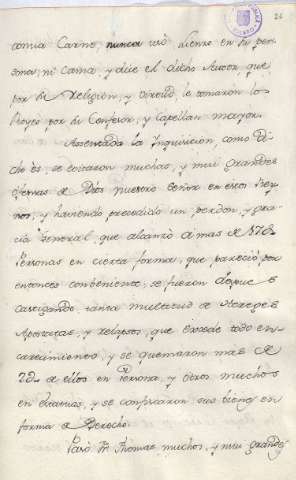 comia Carne, nunca usó Lienzo en su per
sona, ni Cama, y dice el dicho Autor, que
por su Religion, y Virtud, le tomaron los
Reyes por su Confesor, y Capellan mayor.
Assentada la Inquisicion, como di
cho es, se evitaron muchas, y mui grandes
ofensas de Dios nuestro Señor en estos Rey
nos, y haviendo precedido un perdon, y gra
cia General, que alcanzó a mas de
Personas en cierta forma, que pareció por
entonces conveniente, se fueron despues
castigando tanta multitud de Hereges
Apostatas, y relapsos, que excede todo en
carecimiento, y se quemaron mas de
2U. de ellos en Persona, y otros muchos
en Estatuas, y se confiscaron sus bienes en
forma de Derecho.
Pasó Fr. Thomas muchos, y mui grandes